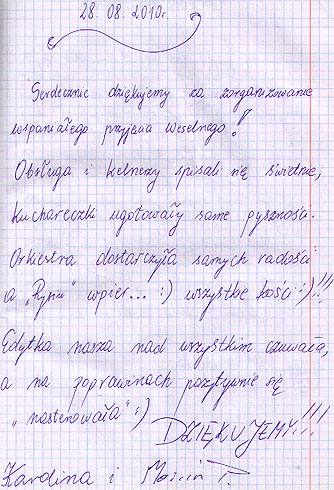 28. 08. 2010r.
Serdecznie dziękujemy za zorganizowanie
wspaniałego przyjęcia weselnego!
Obsługa i kelnerzy spisali się świetnie,
kuchareczki ugotowały same pyszności.
Orkiestra dostarczyła samych radości
a „Rysiu" wpier... :) wszystkie kości :)!!!
Edytka nasza nad wszystkim czuwała,
a na poprawinach pozytywnie się
„nastenowała" :)
DZIĘKUJEMY!!!
Karolina i Marcin P.